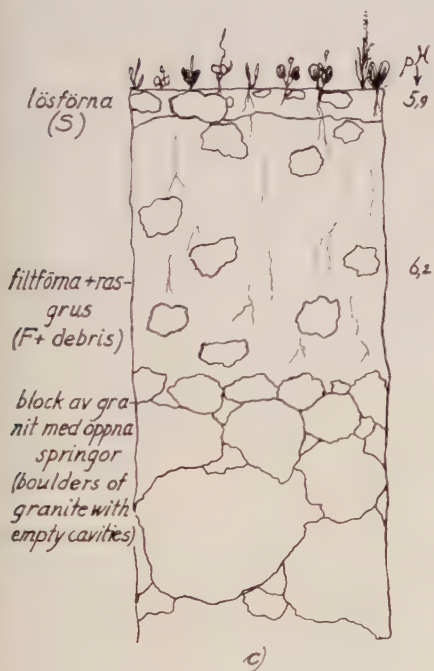 pH
lösförna
(S)
5,9
6,2
filtförna+ras-
grus
(F+ debris)
block av gra-
nit med öppna
springor
(boulders of
granite with
empty cavities)
c)